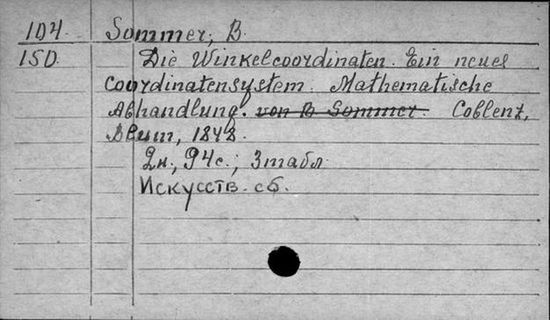 104. Sommer, B.
150. Die Winkelcoordinaten. Ein neues
Coordinatensystem. Mathematische
Abhandlung. von B Sommer. Coblenz,
Blum, 1848.
2н., 94с.; 3табл.
Искусств. сб.